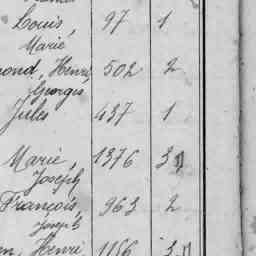 Louis, 97 1
Marie
Henri, 502 2
Georges
Jules 437 1
Marie, 1376 3
Joseph
François, 963 2
Joseph
Henri 1166 3